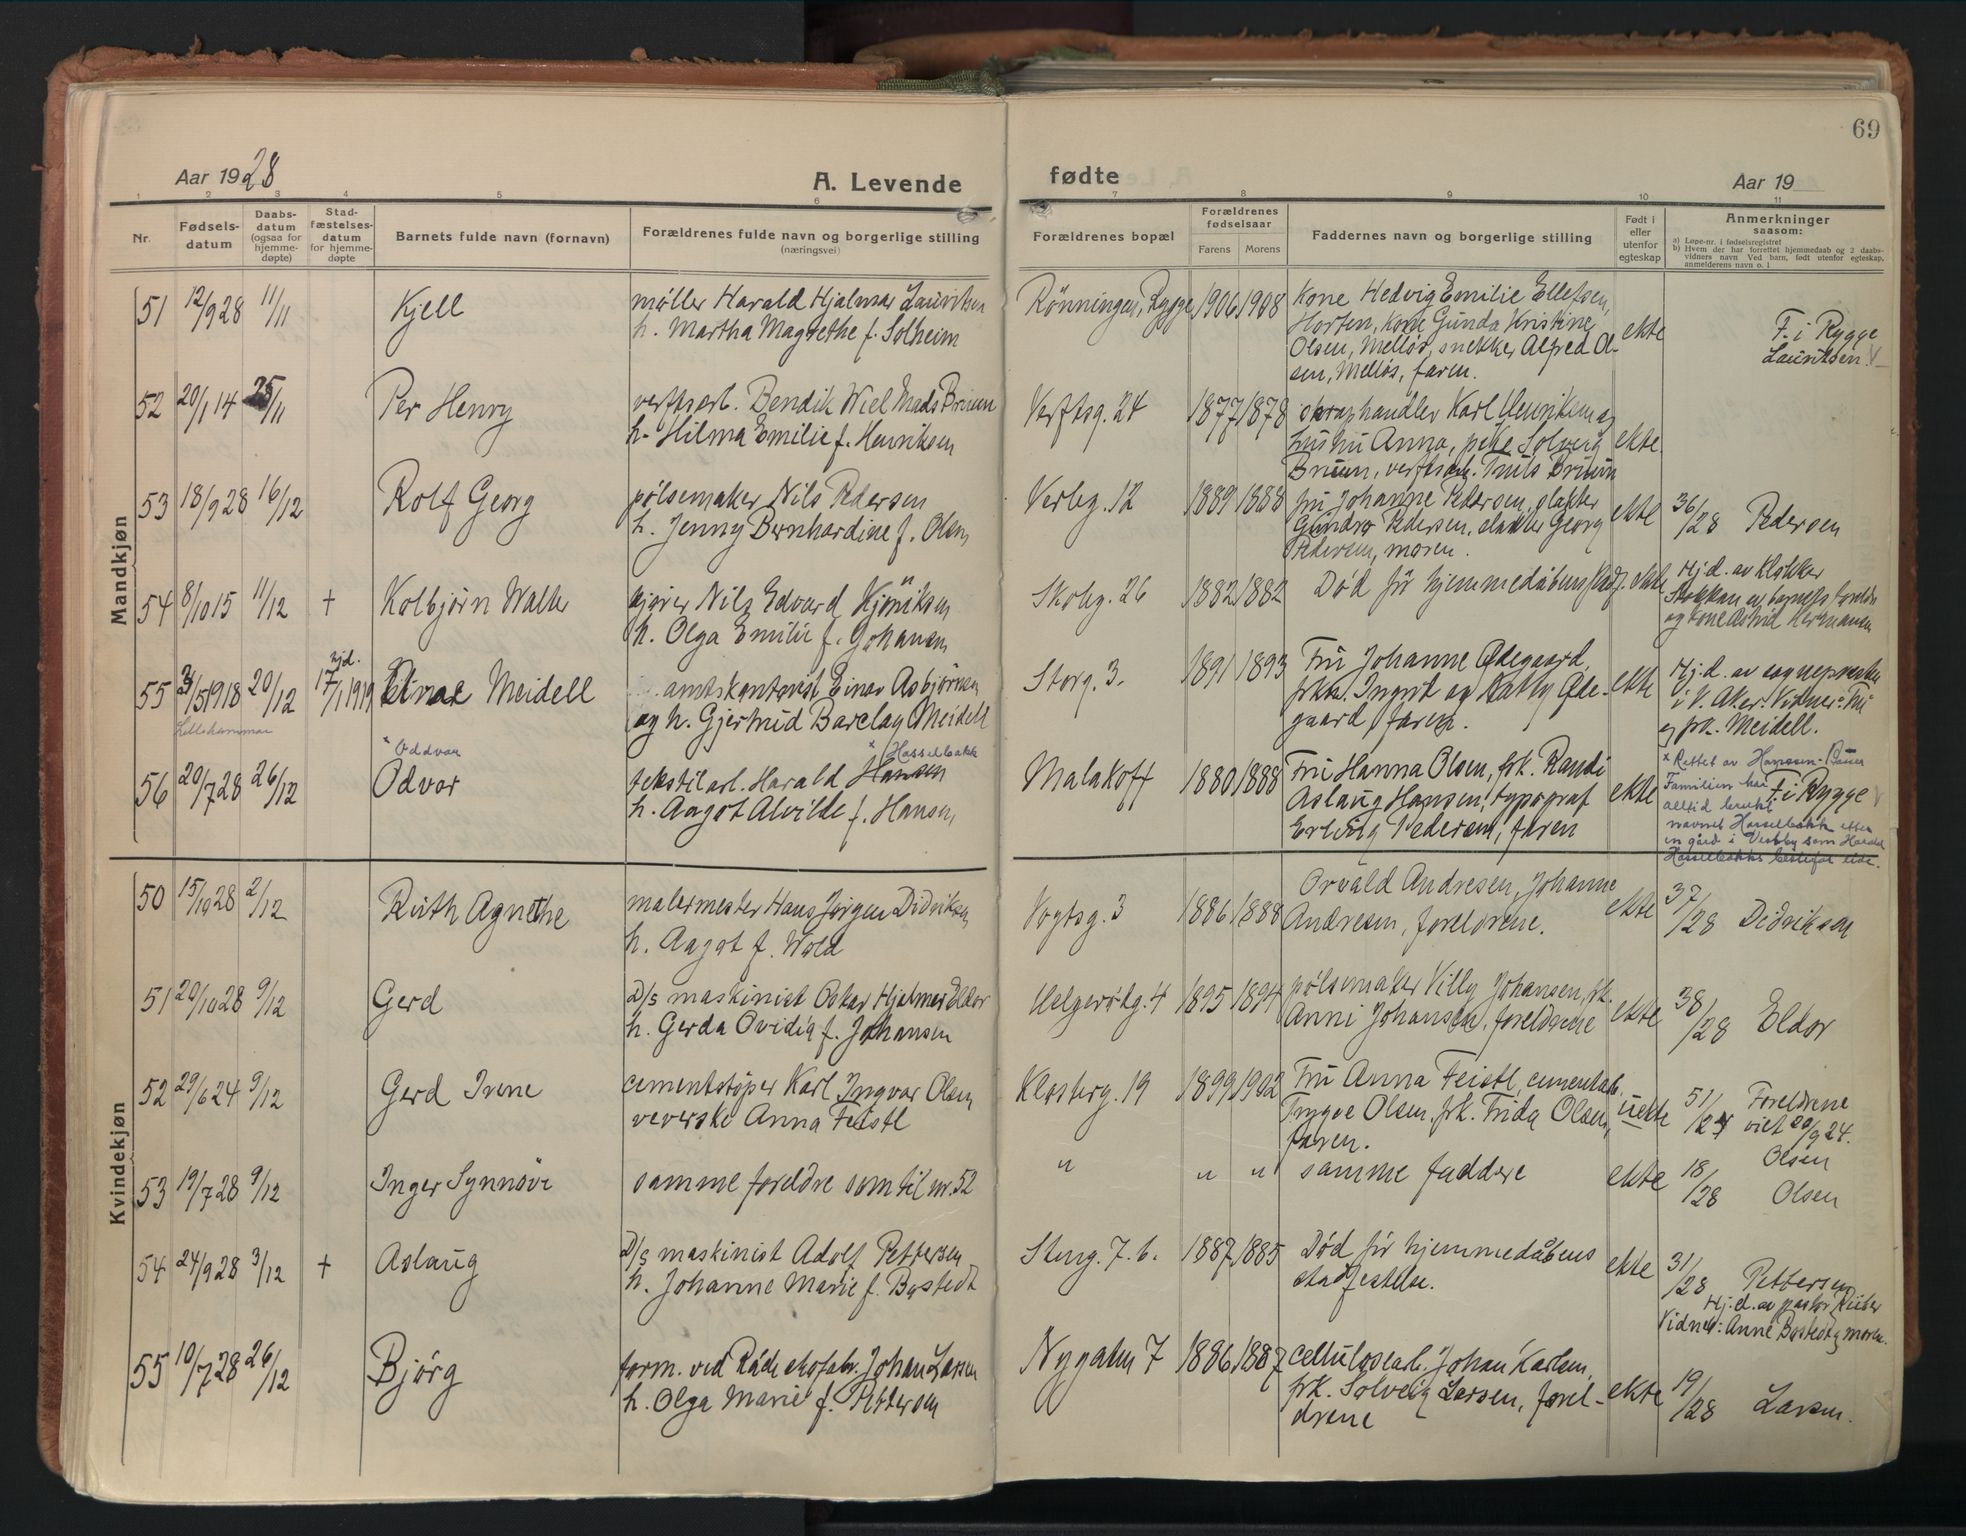 69
Aar 1928
A. Levende
fødte
Aar 19
1 2 3 4 5 6 7 8 9 10 11
Nr.
Fødsels-
datum
Daabs-
datum
(ogsaa for
hjemme-
døpte)
Stad-
fæstelses-
datum
for hjemme-
døpte
Barnets fulde navn (fornavn)
Forældrenes fulde navn og borgerlige stilling
(næringsvei)
Forældrenes bopæl
Forældrenes
fødselsaar
Farens Morens
Faddernes navn og borgerlige stilling
Født i
eller
utenfor
egteskap
Anmerkninger
saasom:
a) Løpe-nr. i fødselsregistret
b) Hvem der har forrettet hjemmedaab og 2 daabs-
vidners navn Ved barn, født utenfor egteskap,
anmelderens navn o. l
Mandkjøn
51 12/9 28 11/11 Kjell
møller Harald Hjalmar Lauritsen
h. Martha Magrethe f. Solheim
Rönningen, Rygge 1906 1908
Kone Hedvig Emilie Ellefsen,
Horten, kone Gunda Kristine
Olsen, Melløs, snekker Alfred Ol-
sen, Melløs, faren.
ekte
F. i Rygge
Lauritsen V
52 20/1 14 25/11 Per Henry
verftsarb. Bendik Wiel Mads Bruun
h. Hilma Emilie f. Henriksen
Verftsg. 24 1877 1878
skraphandler Karl Henriksen og
hustru Anna, pike Solveig
Bruun, verftsarb. Truls Bruun
ekte
53 18/9 28 16/12 Rolf Georg
pølsemaker Nils Pedersen
h. Jenny Bernhardine f. Olsen
Verbg. 12 1889 1888
fru Johanne Pedersen, slakter
Gundro Pedersen, slakter Georg
Pedersen, moren.
ekte
36/28 Pedersen
54 8/10 15 11/12 + Kolbjørn Walter
kjører Nils Edvard Kjöniksen
h. Olga Emilie f. Johansen
Skobg. 26 1882 1882
Død för hjemmedåbens stadf.
ekte
Hj.d. av Klokker
Stokkan en barnets foreldre
og kone Astrid Hermansen
55 31/5 1918 20/12 hjd. 17/1 1919 Einar Meidell
Lillehammer
amtskontorist Einar Asbjørnsen
og h. Gjertrud Barclay Meidell
Storg. 3. 1891 1893
Fru Johanne Ødegaard,
frkn. Ingrid og Kathy Øde-
gaard, faren.
ekte
Hj.d. av sogneprest
i V. Aker. Vidner: Fru
og frk. Meidell.
56 20/7 28 26/12
x Oddvar
Odvar
x Hasselbakk
tekstilarb. Harald Hansen
h. Aagot Alvilde f. Hansen
Malakoff 1880 1888
Fru Hanna Olsen, frk. Randi
Aslaug Hansen, typograf
Erling Pedersen, faren
ekte
F. i Rygge V
x Rettet av Hanssen-Bauer
Familien har
alltid brukt
navnet Hasselbakk etter
en gård i Vestby som Harald
Hasselbakks bestefar eide.
Kvindekjøn
50 15/10 28 2/12 Ruth Agnethe
malermester Hans Jørgen Didriksen
h. Aagot f. Wold
Vogtsg. 3 1886 1888
Orvald Andresen, Johanne
Andresen, foreldrene.
ekte
37/28 Didriksen
51 20/10 28 9/12 Gerd
D/s maskinist Oskar Hjalmar Eldor
h. Gerda Ovidia f. Johansen
Helgerödg. 4 1895 1894
pølsemaker Villy Johansen, frk.
Anni Johansen, foreldrene
ekte
38/28 Eldor
52 29/6 24 9/12 Gerd Irene
cementstøper Karl Ingvar Olsen
veverske Anna Feistl
Klosterg. 19 1899 1902
Fru Anna Feistl, cementarb.
Trygve Olsen, frk. Frida Olsen,
faren.
uekte
51/24 Foreldrene
viet 20/9 24.
Olsen
53 19/7 28 9/12 Inger Synnöve
samme foreldre som til nr. 52
" " "
samme faddere
ekte
18/28 Olsen
54 24/9 28 3/12 + Aslaug
D/s maskinist Adolf Pettersen
h. Johanne Marie f. Bostedt
Steng. 7. b. 1887 1885
Död för hjemmedåbens
stadfestelse.
ekte
31/28 Pettersen
Hj.d. av pastor Huber
Vidner: Anne Bostedt og moren.
55 10/7 28 26/12 Bjørg
form. ved Råde skofabr. Johan Larsen
h. Olga Marie f. Pettersen
Nygaten 7 1886 1887
cellulosearb. Johan Karlsen,
frk. Solveig Larsen, forel-
drene
ekte
19/28 Larsen.